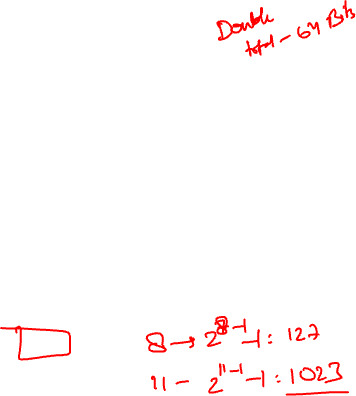 Double
total - 64 Bits
8 → 2^8-1 -1 : 127
11 - 2^11-1 -1 : 1023